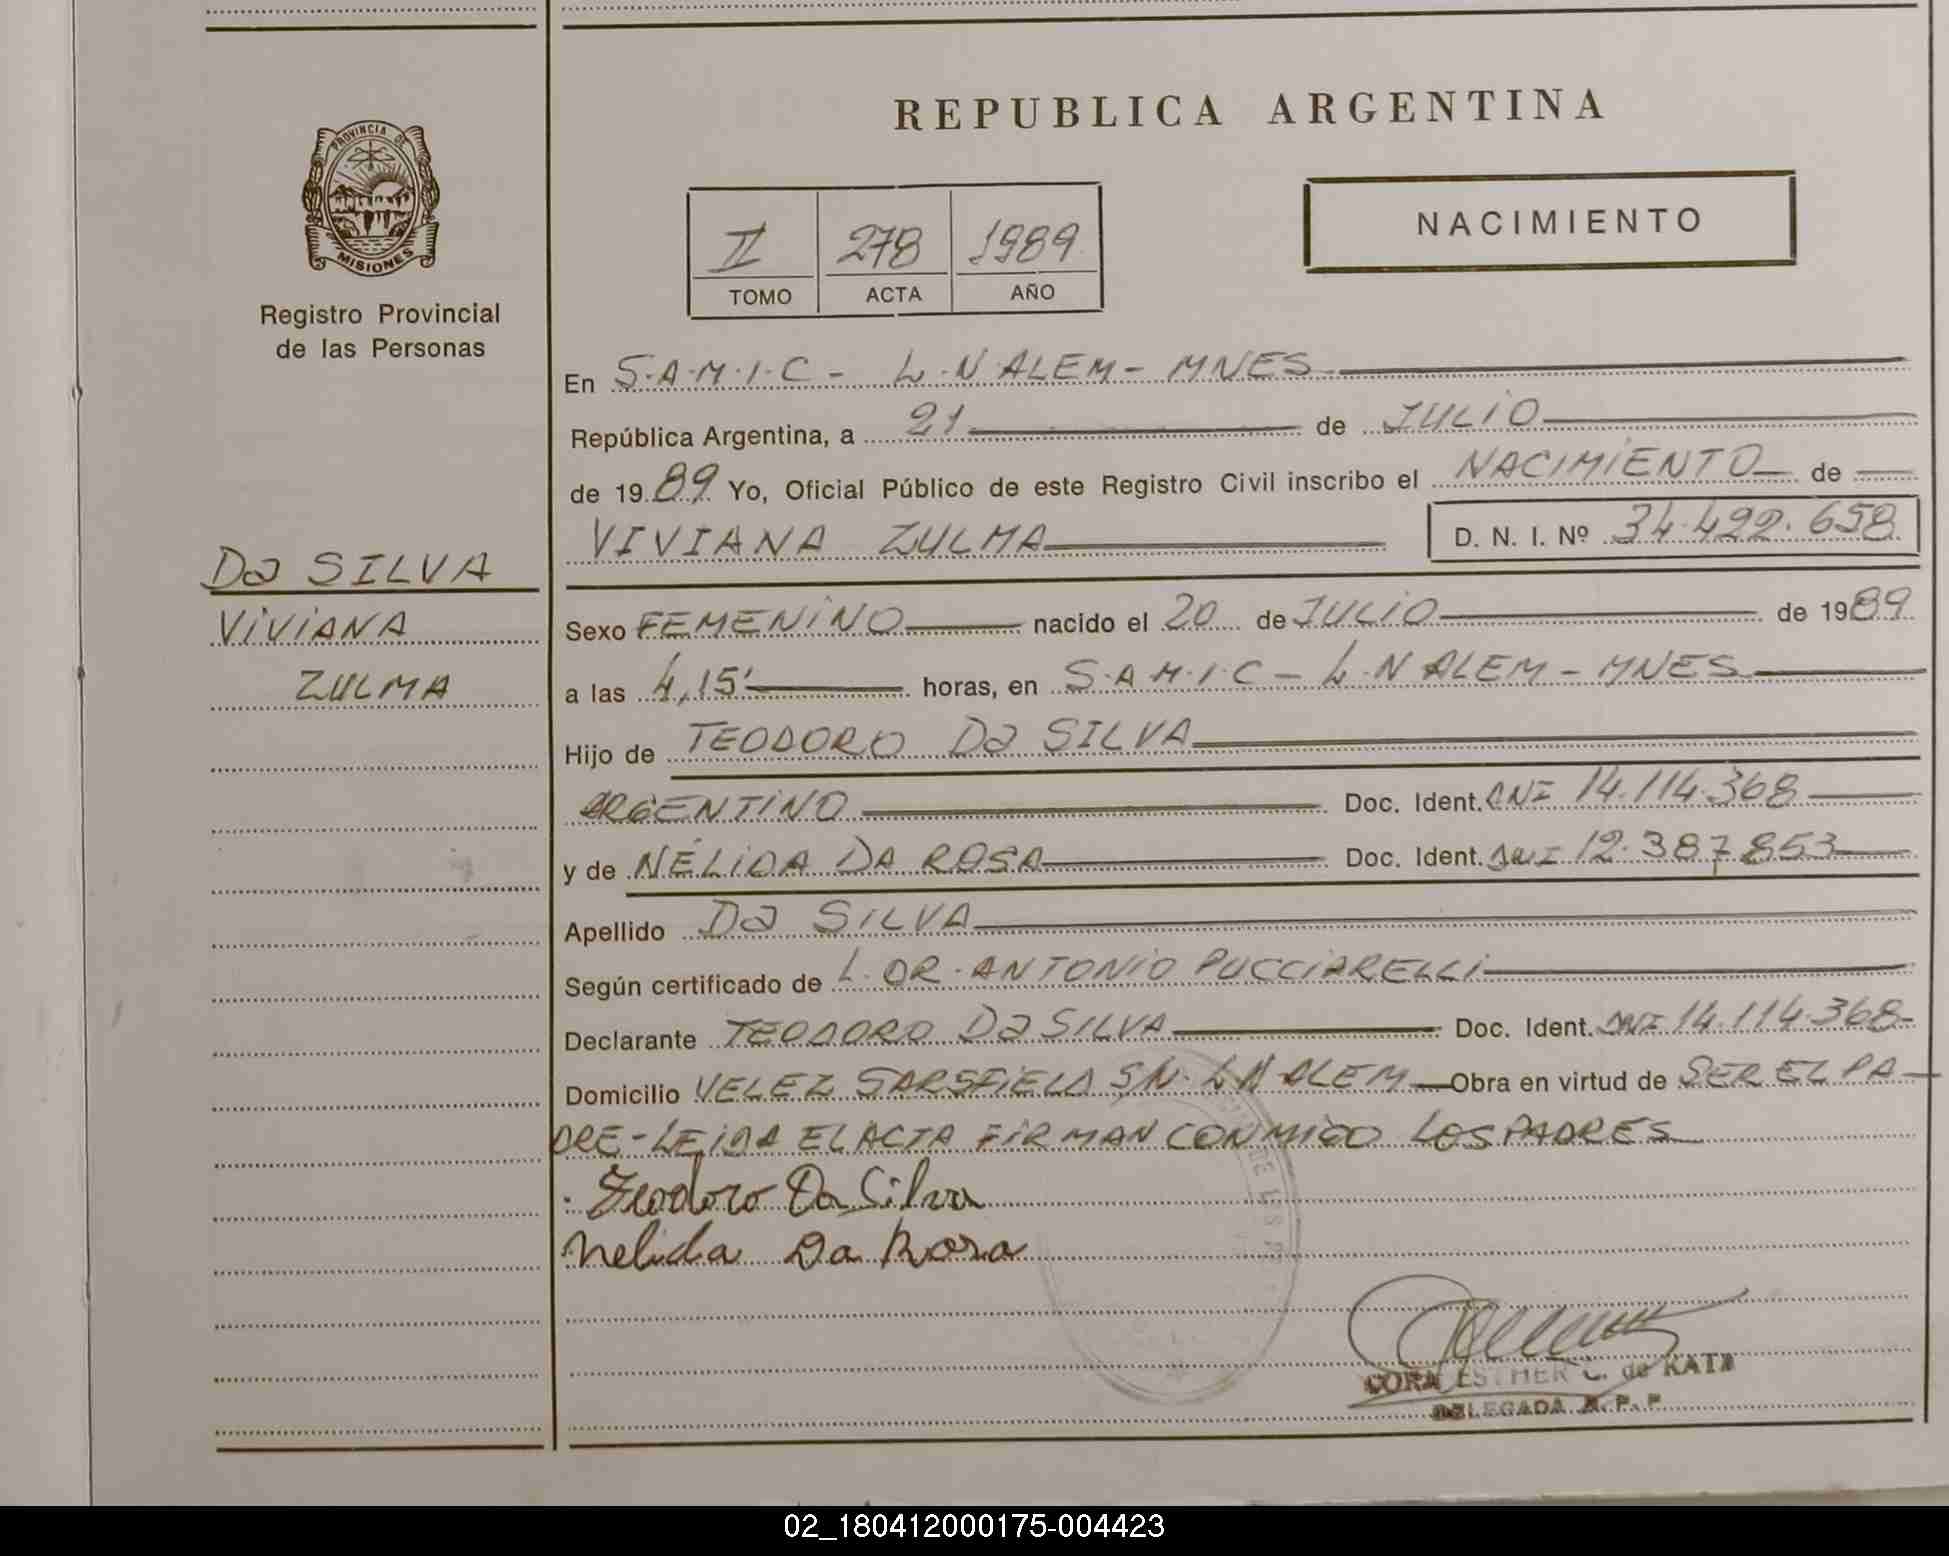 REPUBLICA ARGENTINA
PROVINCIA DE
MISIONES
Registro Provincial
de las Personas
II 278 1989
TOMO ACTA AÑO
NACIMIENTO
En S.A.M.I.C - L.N ALEM - MNES
República Argentina, a 21 de JULIO
de 1989 Yo, Oficial Público de este Registro Civil inscribo el NACIMIENTO de
VIVIANA ZULMA D. N. I. Nº 34.422.658
Da SILVA
VIVIANA
ZULMA
Sexo FEMENINO nacido el 20 de JULIO de 1989
a las 4,15' horas, en S.A.M.I.C - L.N ALEM - MNES
Hijo de TEODORO Da SILVA
ARGENTINO Doc. Ident. DNI 14.114.368
y de NÉLIDA DA ROSA Doc. Ident. DNI 12.387.853
Apellido Da SILVA
Según certificado de L. DR. ANTONIO PUCCIARELLI
Declarante TEODORO Da SILVA Doc. Ident. DNI 14.114.368
Domicilio VELEZ SARSFIELD SN. LN ALEM Obra en virtud de SER EL PA
DRE - LEIDA EL ACTA FIRMAN CONMIGO LOS PADRES
Teodoro Da Silva
Nelida Da Rosa
CORA ESTHER C. de KATZ
DELEGADA R. P. P
02_180412000175-004423